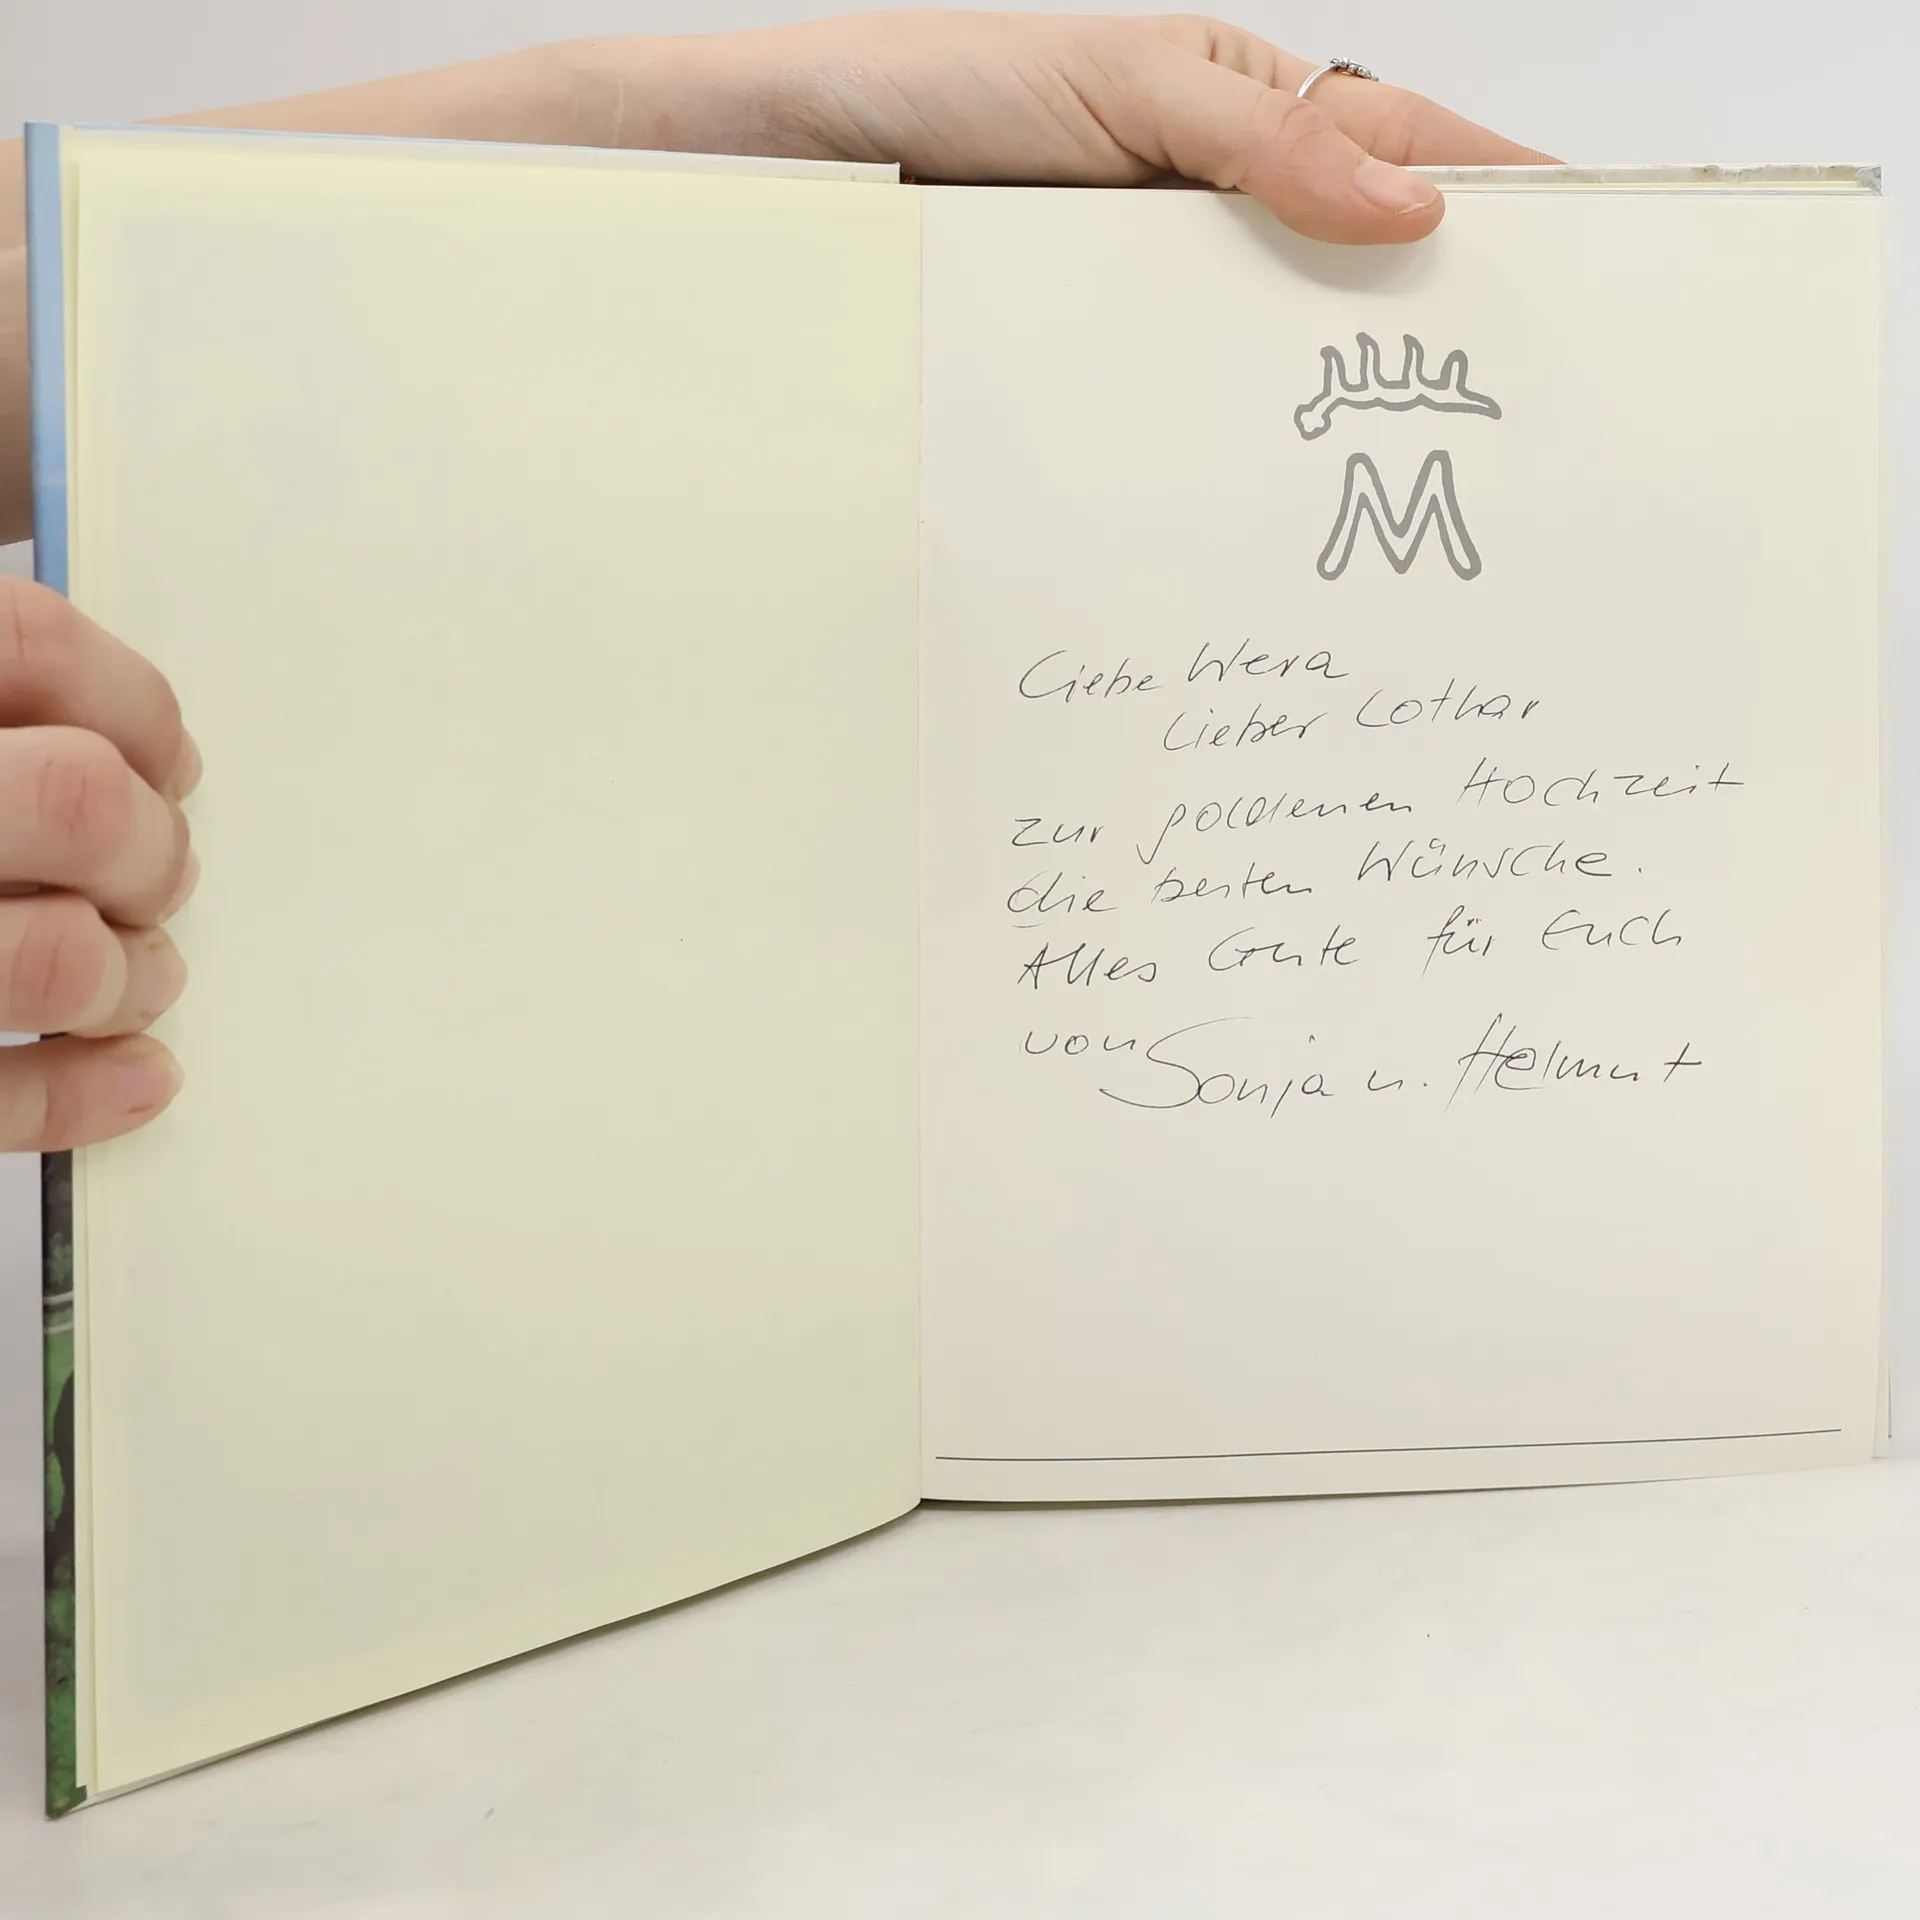 M
Liebe Wera
Lieber Lothar
zur goldenen Hochzeit
die besten Wünsche.
Alles Gute für Euch
von Sonja u. Helmut